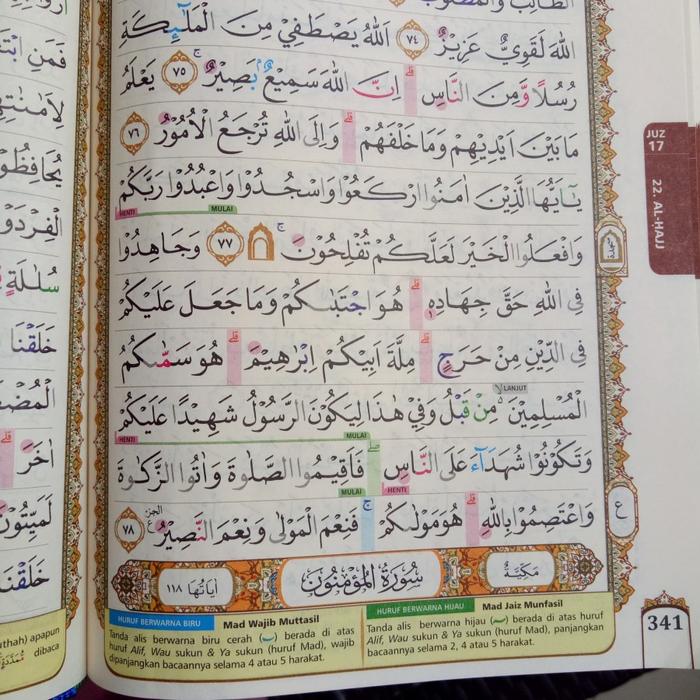 الطَّالِبُ وَالْمَطْلُوْبُ
اللّٰهَ لَقَوِيٌّ عَزِيْزٌ ٧٤ اَللّٰهُ يَصْطَفِيْ مِنَ الْمَلٰۤىِٕكَةِ
رُسُلًا وَّمِنَ النَّاسِۗ اِنَّ اللّٰهَ سَمِيْعٌۢ بَصِيْرٌۚ ٧٥ يَعْلَمُ
مَا بَيْنَ اَيْدِيْهِمْ وَمَا خَلْفَهُمْۗ وَاِلَى اللّٰهِ تُرْجَعُ الْاُمُوْرُ ٧٦
يٰٓاَيُّهَا الَّذِيْنَ اٰمَنُوا ارْكَعُوْا وَاسْجُدُوْا وَاعْبُدُوْا رَبَّكُمْ
HENTI MULAI
وَافْعَلُوا الْخَيْرَ لَعَلَّكُمْ تُفْلِحُوْنَۚ ۩ ٧٧ وَجَاهِدُوْا
فِى اللّٰهِ حَقَّ جِهَادِهٖۗ هُوَ اجْتَبٰىكُمْ وَمَا جَعَلَ عَلَيْكُمْ
فِى الدِّيْنِ مِنْ حَرَجٍۗ مِلَّةَ اَبِيْكُمْ اِبْرٰهِيْمَۗ هُوَ سَمّٰىكُمُ
LANJUT
الْمُسْلِمِيْنَ ەۙ مِنْ قَبْلُ وَفِيْ هٰذَا لِيَكُوْنَ الرَّسُوْلُ شَهِيْدًا عَلَيْكُمْ
HENTI MULAI
وَتَكُوْنُوْا شُهَدَاۤءَ عَلَى النَّاسِۖ فَاَقِيْمُوا الصَّلٰوةَ وَاٰتُوا الزَّكٰوةَ
MULAI HENTI
وَاعْتَصِمُوْا بِاللّٰهِۗ هُوَ مَوْلٰىكُمْۚ فَنِعْمَ الْمَوْلٰى وَنِعْمَ النَّصِيْرُ ٧٨
مَكِّيَّةٌ سُوْرَةُ الْمُؤْمِنُوْنَ اٰيَاتُهَا ١١٨
HURUF BERWARNA BIRU Mad Wajib Muttasil
Tanda alis berwarna biru cerah (~) berada di atas
huruf Alif, Wau sukun & Ya sukun (huruf Mad), wajib
dipanjangkan bacaannya selama 4 atau 5 harakat.
HURUF BERWARNA HIJAU Mad Jaiz Munfasil
Tanda alis berwarna hijau (~) berada di atas huruf
Alif, Wau sukun & Ya sukun (huruf Mad), panjangkan
bacaannya selama 2, 4 atau 5 harakat.
JUZ
17
22. AL-HAJJ
سجدة
ع
341
فَمَنِ
يُحَافِظُ
الْفِرْدَوْ
سُلٰلَةٍ
خَلَقْنَا
الْمُضْ
اٰخَرَ
لَمَيِّتُوْنَ
خَلَقْنَا
apapun
dibaca